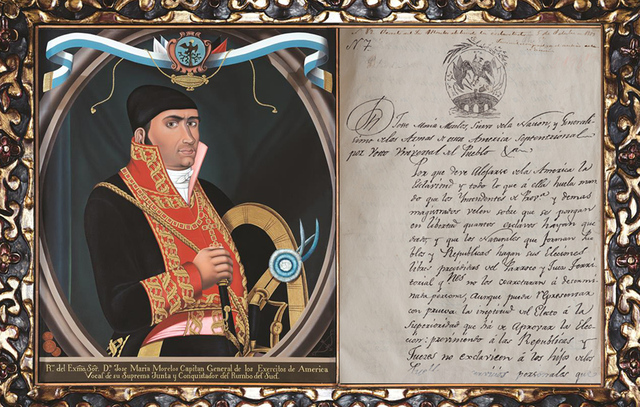 R.to del Exmo. Sor. Dn. Jose Maria Morelos Capitan General de los Exercitos de America
Vocal de su Suprema Junta y Conquistador del Rumbo del Sud.
N. 7.
Dn Jose Maria Morelos, Siervo de la Nacion, y Generali-
simo de las Armas de esta America Septentrional
por Voto Universal del Pueblo &a.
Por que deve alejarse de la America la
Esclavitud y todo lo que á ella huela man-
do que los Yntendentes de Prova y demas
magistrados velen sobre que se pongan
en libertad quantos esclavos hayan que-
dado, y que los Naturales que forman Pue-
blos y Republicas hagan sus Elecciones
libres presididas del Parroco y Juez Territ-
orial no los coartaran á determi-
nada persona, aunque pueda representar
con prueba la ineptitud del electo á la
Superioridad que ha de aprovar la Elec-
cion: previniendo á las Republicas y
Jueces no esclavicen á los hijos de los
Pueblos servicios personales que